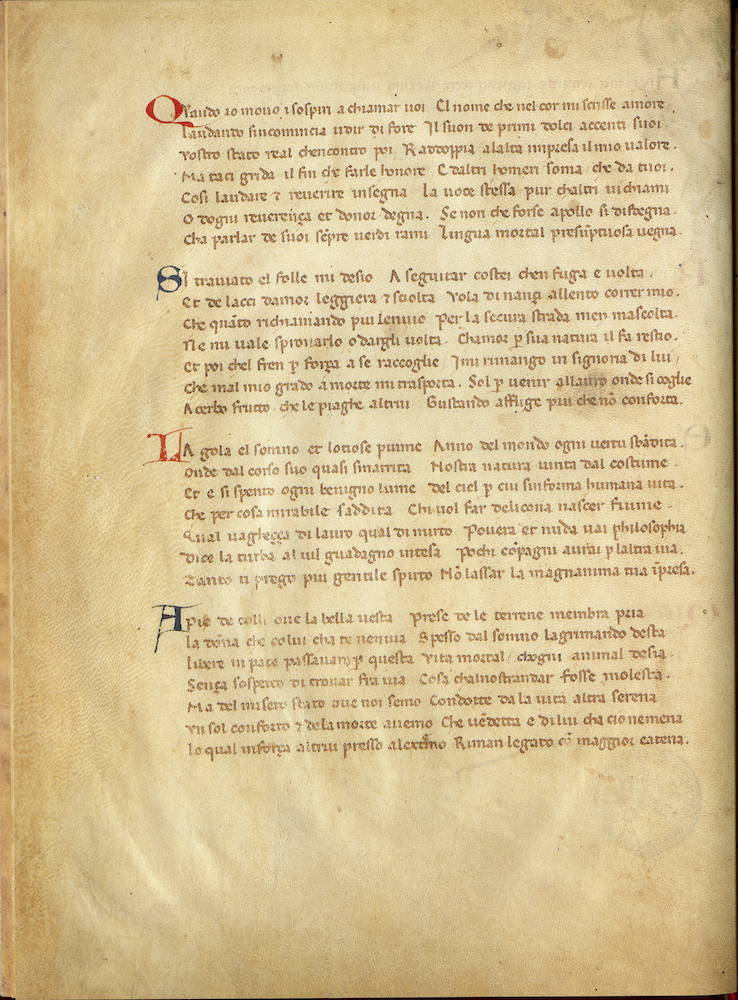 Quando io movo i sospiri a chiamar voi El nome che nel cor mi scrisse amore
Laudando sincomincia udir di fore Il suon de primi dolci accenti suoi
Vostro stato real chencontro poi Raddoppia alalta impresa il mio valore.
Ma taci grida il fin che farle honore E daltri homeri soma che da tuoi.
Cosi laudare 7 reverire insegna La voce stessa pur chaltri vi chiami
O dogni reverença et donor degna. Se non che forse apollo si disdegna.
Cha parlar de suoi sẽpre verdi rami Lingua mortal presũptuosa vegna.
SI traviato el folle mi desio A seguitar costei chen fuga e volta.
Et de lacci damor leggiera 7 sciolta Vola dinançi allento correr mio.
Che quãto richiamando piu lenvio Per la secura strada men mascolta.
Ne mi vale spronarlo o dargli volta. Chamor p sua natura il fa restio.
Et poi chel fren p força a se raccoglie I mi rimango in signoria di lui /
Che mal mio grado a morte mi trasporta. Sol p venir allauro onde si coglie
Acerbo frutto che le piaghe altrui Gustando afflige piu che nõ conforta.
LA gola el somno et lotiose piume Anno del mondo ogni vertu sbãdita.
Onde dal corso suo quasi smarrita Nostra natura vinta dal costume.
Et e si spento ogni benigno lume del ciel p cui sinforma humana vita.
Che per cosa mirabile saddita Chi vol far delicona nascer fiume.
Qual vaghecça di lauro qual di mirto Povera et nuda vai philosophia
Dice la turba al vil guadagno intesa Pochi cõpagni avrai p laltra via.
Tanto ti prego piu gentile spirto Nõ lassar la magnanima tua ĩpresa.
A pie de colli ove la bella vesta Prese de le terrene membra pria
la dõna che colui cha te nenvia Spesso dal somno lagrimando desta
libere in pace passavam p questa Vita mortal / chogni animal desia.
Sença sospecto di trovar fra via Cosa chal nostrandar fosse molesta.
Ma del misero stato ove noi semo Condotte da la vita altra serena
Un sol conforto 7 de la morte avemo Che vẽdetta e di lui cha cio ne mena
lo qual in força altrui presso alextremo Riman legato cõ maggior catena.